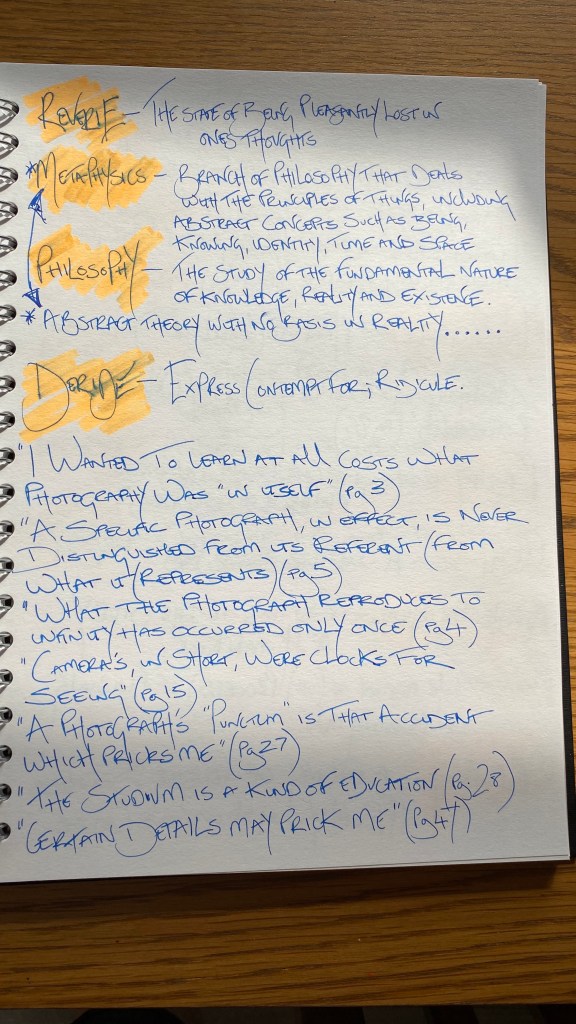 REVERIE - THE STATE OF BEING PLEASANTLY LOST IN
ONES THOUGHTS
*METAPHYSICS - BRANCH OF PHILOSOPHY THAT DEALS
WITH THE PRINCIPLES OF THINGS, INCLUDING
ABSTRACT CONCEPTS SUCH AS BEING,
KNOWING, IDENTITY, TIME AND SPACE
PHILOSOPHY - THE STUDY OF THE FUNDAMENTAL NATURE
OF KNOWLEDGE, REALITY AND EXISTENCE.
* ABSTRACT THEORY WITH NO BASIS IN REALITY......
DERIDE - EXPRESS CONTEMPT FOR; RIDICULE.
"I WANTED TO LEARN AT ALL COSTS WHAT
PHOTOGRAPHY WAS "IN ITSELF" (Pg 3)
"A SPECIFIC PHOTOGRAPH, IN EFFECT, IS NEVER
DISTINGUISHED FROM ITS REFERENT (FROM
WHAT IT REPRESENTS) (Pg 5)
"WHAT THE PHOTOGRAPH REPRODUCES TO
INFINITY HAS OCCURRED ONLY ONCE (Pg 4)
"CAMERA'S, IN SHORT, WERE CLOCKS FOR
SEEING" (Pg 15)
"A PHOTOGRAPH'S "PUNCTUM" IS THAT ACCIDENT
WHICH PRICKS ME" (Pg 27)
"THE STUDIUM IS A KIND OF EDUCATION (Pg. 28)
"CERTAIN DETAILS MAY PRICK ME" (Pg 47)